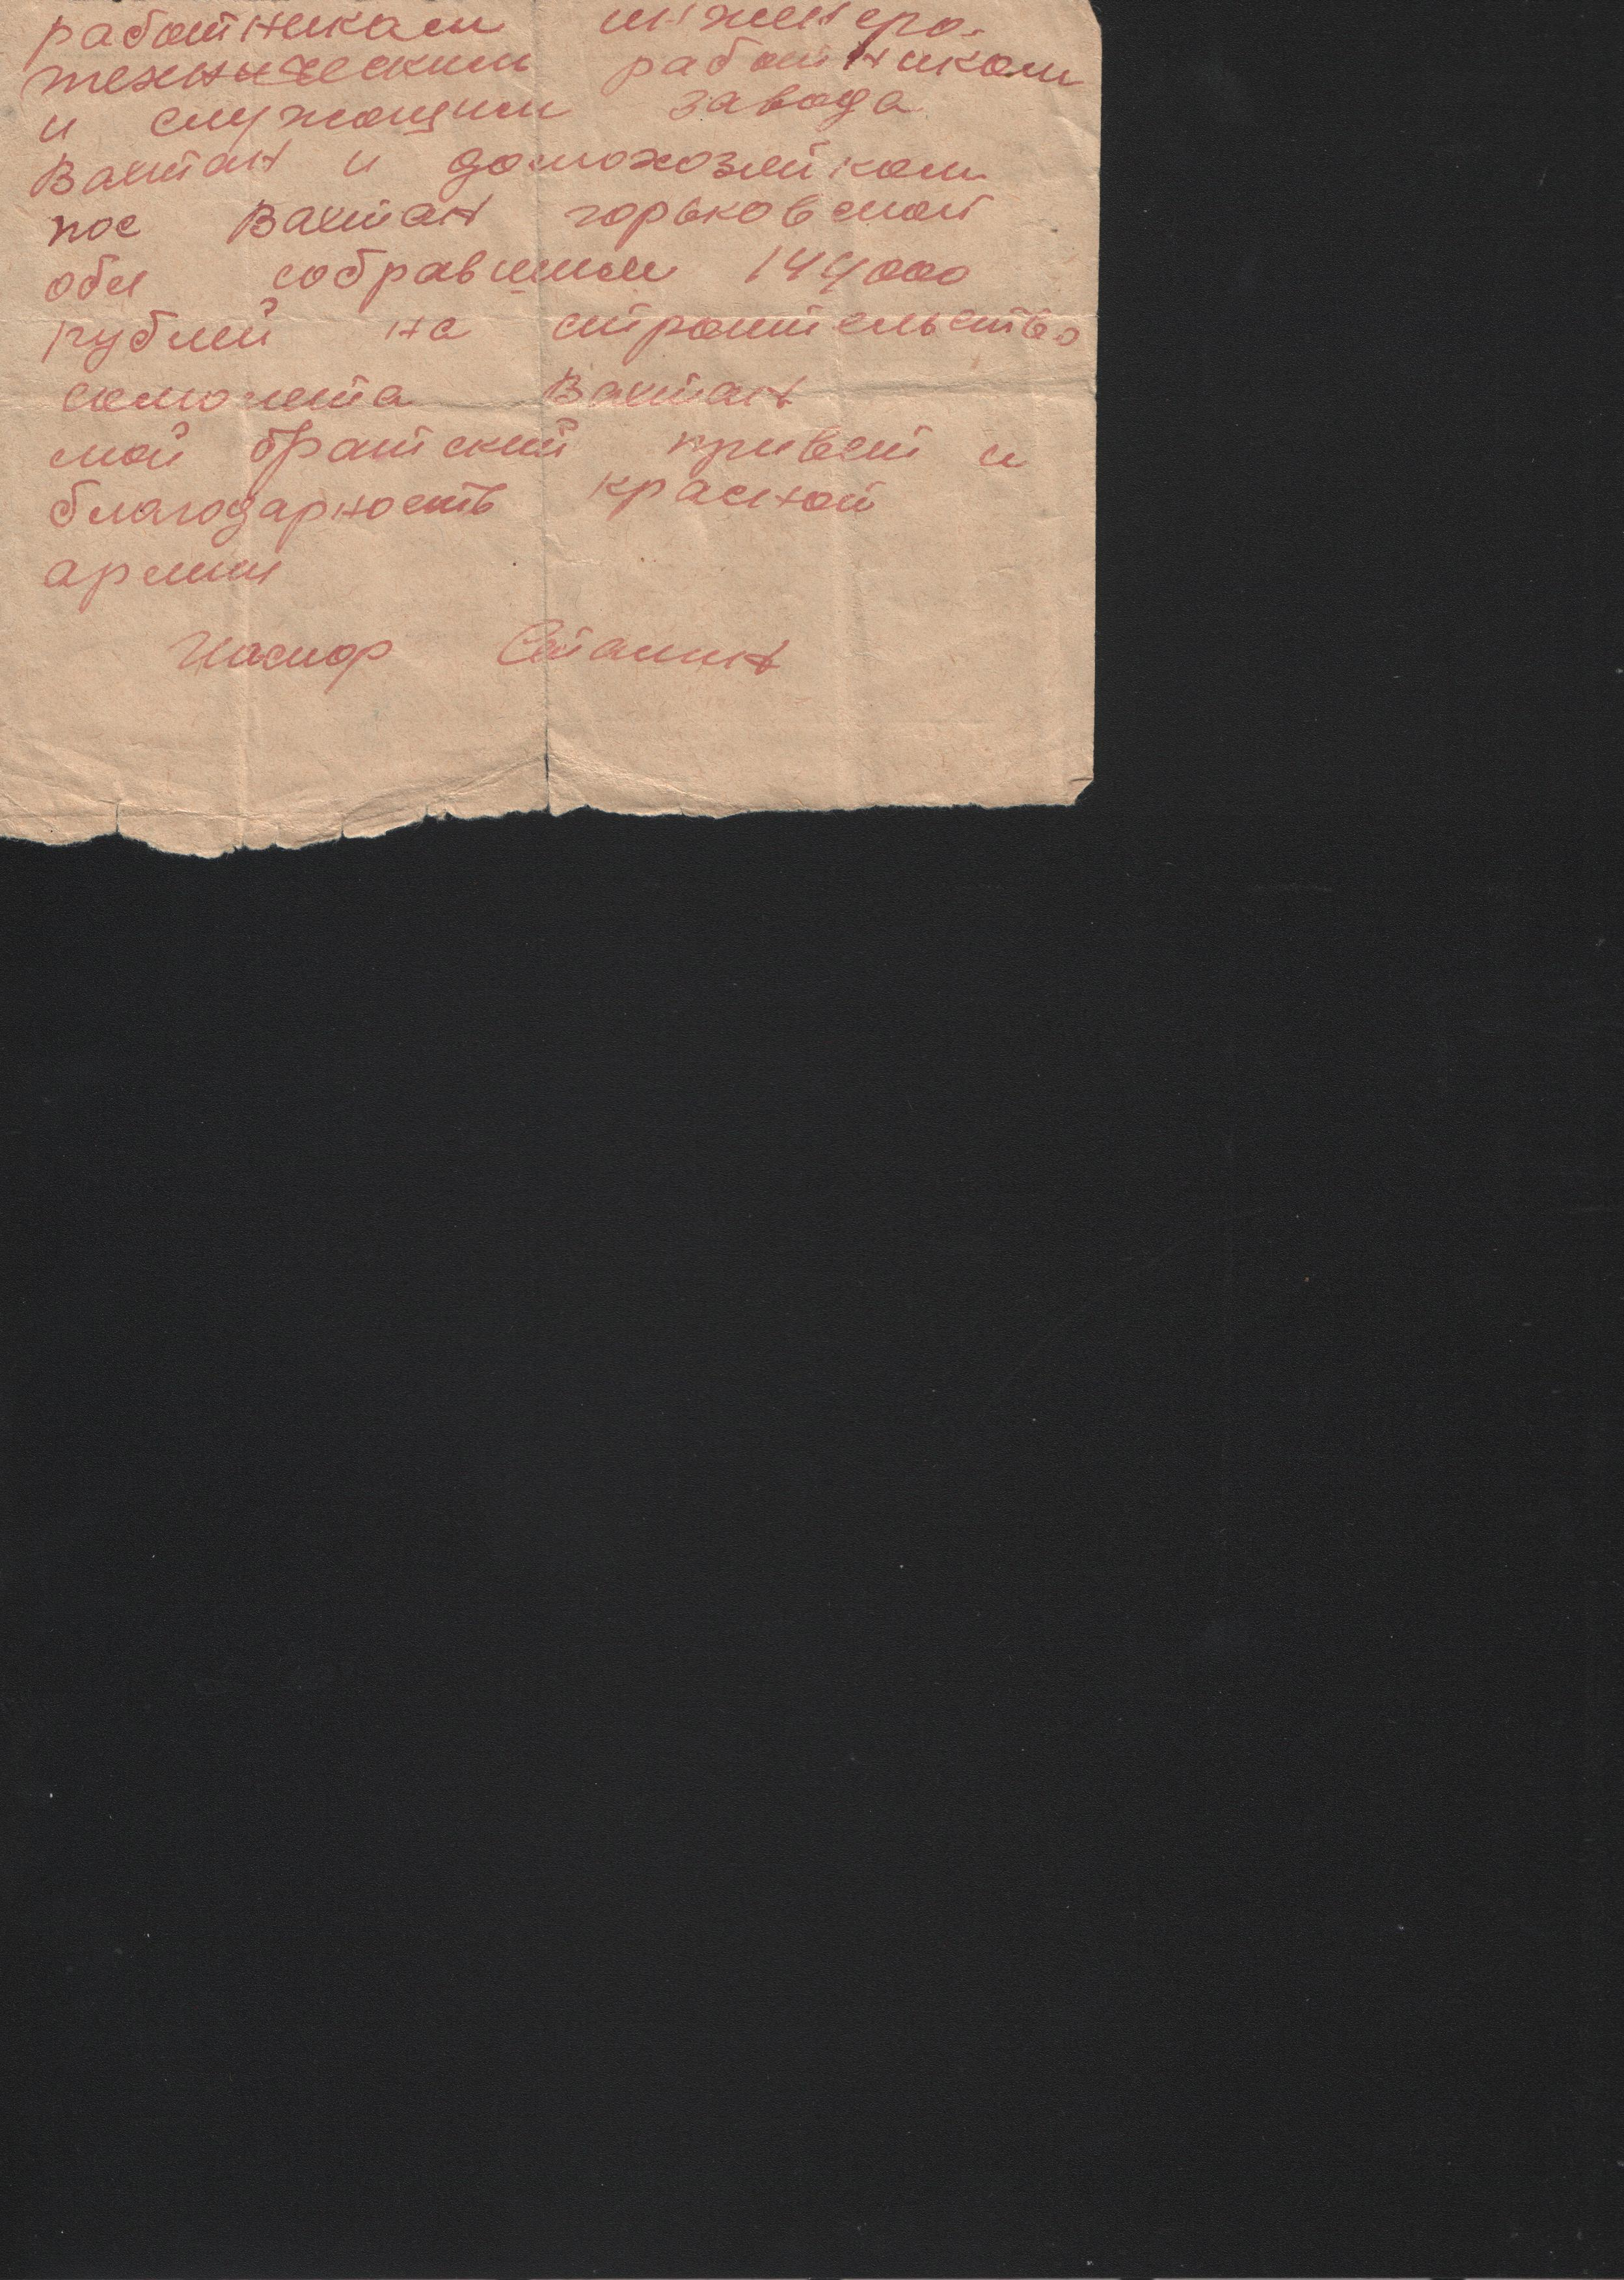 работникам инженеро-
техническим работникам
и служащим завода
Вахтан и домохозяйкам
пос Вахтан горьковской
обл собравшим 144000
рублей на строительство
самолета Вахтан
мой братский привет и
благодарность красной
армии
Иосиф Сталин